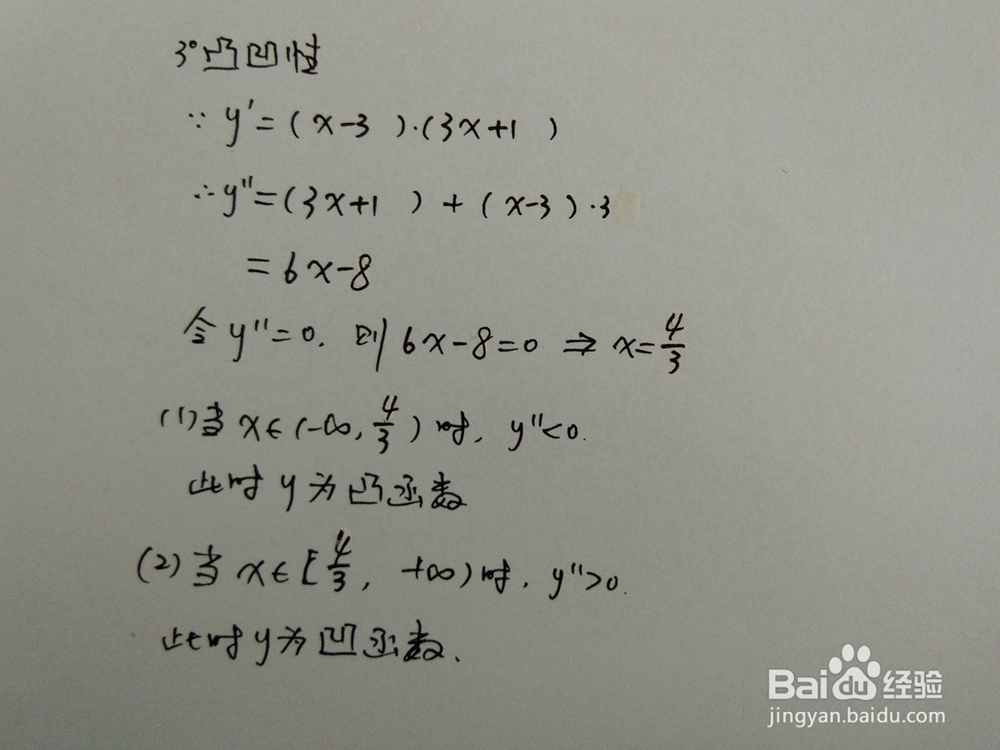 3°凸凹性
∵ y'=(x-3)·(3x+1)
∴y''=(3x+1)+(x-3)·3
=6x-8
令y''=0. 则6x-8=0 ⇒ x=4/3
(1)当x∈(-∞,4/3)时, y''<0.
此时y为凸函数
(2)当x∈[4/3, +∞)时, y''>0.
此时y为凹函数.
Baidu经验
jingyan.baidu.com